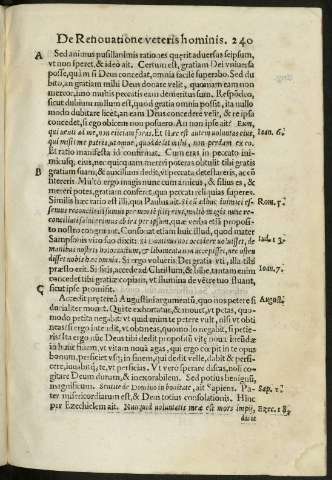 De Renouatione veteris hominis. 240
A Sed animus pusillanimis rationes quęrit aduersus seipsum,
vt non speret, & ideò ait. Certum est, gratiam Dei vniuersa
posse, quàm si Deus concedat, omnia facile superabo. Sed du
bito, an gratiam mihi Deus donare velit, quoniam tam non
mereor, imò multis peccatis eam demeritus sum. Respōdeo,
sicut dubium nullum est, quod gratia omnia possit, ita nullo
modo dubitare licet, an eam Deus concedere velit, & re ipsa
concedet, si ego obicem non posuero. An non ipse ait? Eum,
qui venit ad me, non eiiciam foras. Et hæc est autem voluntas eius, Ioan. 6.
qui misit me patris, vt omne, quod dedit mihi, non perdam ex eo.
Et ratio manifesta id confirmat. Cum eras in peccato ini-
micus eius, nec quicquam mereri poteras obtulit tibi gratis
B gratiam suam, & auxilium dedit, vt peccata detestareris, ac con
litereris. Multò ergo magis nunc cum amicus, & filius es, &
mereri potes, gratiam conferet, qua peccati reliquias superes.
Similis hæc ratio est illi, qua Paulus ait. Si cùm inimici es- Rom. 5.
semus reconciliati sumus per mortē filij eius, multò magis nunc re-
conciliati salui erimus
to nostro congruunt. Consonat etiam huic illud, quod mater
Sampsonis viro suo dixit: Si Dominus nos occidere voluisset, de Iud. 13.
manibus nostris holocaustum, & libamenta non accepisset, nec
disset nobis hæc omnia. Si ergo volueris Dei gratia vti, illa tibi
præsto erit. Si sitis, accede ad Christum, & bibe, tantam enim Ioan. 7.
concedet tibi gratiæ copiam, vt flumina de vētre tuo fluant,
C sicut ipse promisit.
Accedit pręterea Augustini argumentū, quo nos petere si August.
dualiter mouet. Qui te exhortatur, & mouet, vt petas, quo-
modo petita negabit? vt quid animum petere vult, nisi vt obti
neas? si ergo inte ndit, vt obtineas, quomodo negabit, si petie-
ris? Ita ergo nūc Deus tibi dedit propositū vitę nouæ incundæ
in
bonum, perficiet vsq; in finem, qui dedit velle, dabit & perfi-
cere, iouabitq; te, vt perficias. Vt vero sperare discas, noli co-
gitare Deum durum, & inexorabilem. Sed potius benignū,
magnificum. Sentite de Domino in bonitate, ait Sapiens. Pa- Sap. 1.
ter misericordiarum est, & Deus totius consolationis. Hinc
per Ezechielem ait. Nunquid voluntatis meæ est mors impij, Ezec. 18.
dicit